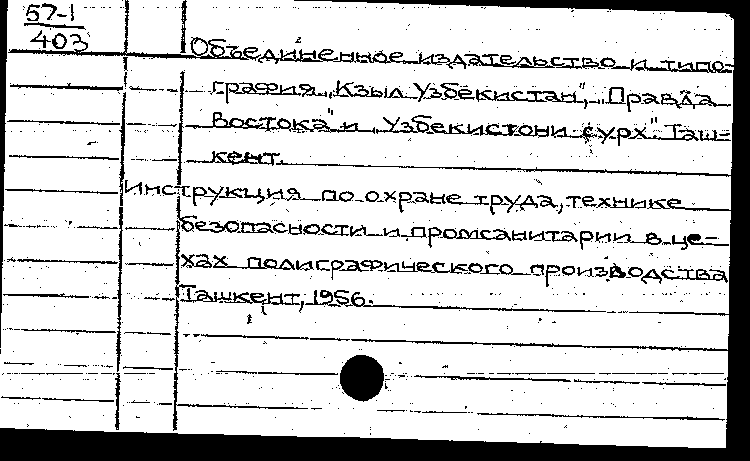 57-1
403
Объединенное издательство и типо-
графия „Кзыл Узбекистан", „Правда
Востока" и „Узбекистони сурх". Таш-
кент.
Инструкция по охране труда, технике
безопасности и промсанитарии в це-
хах полиграфического производства
Ташкент, 1956.